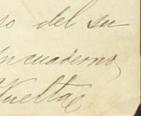 so del su
encuaderno,
Vuelta